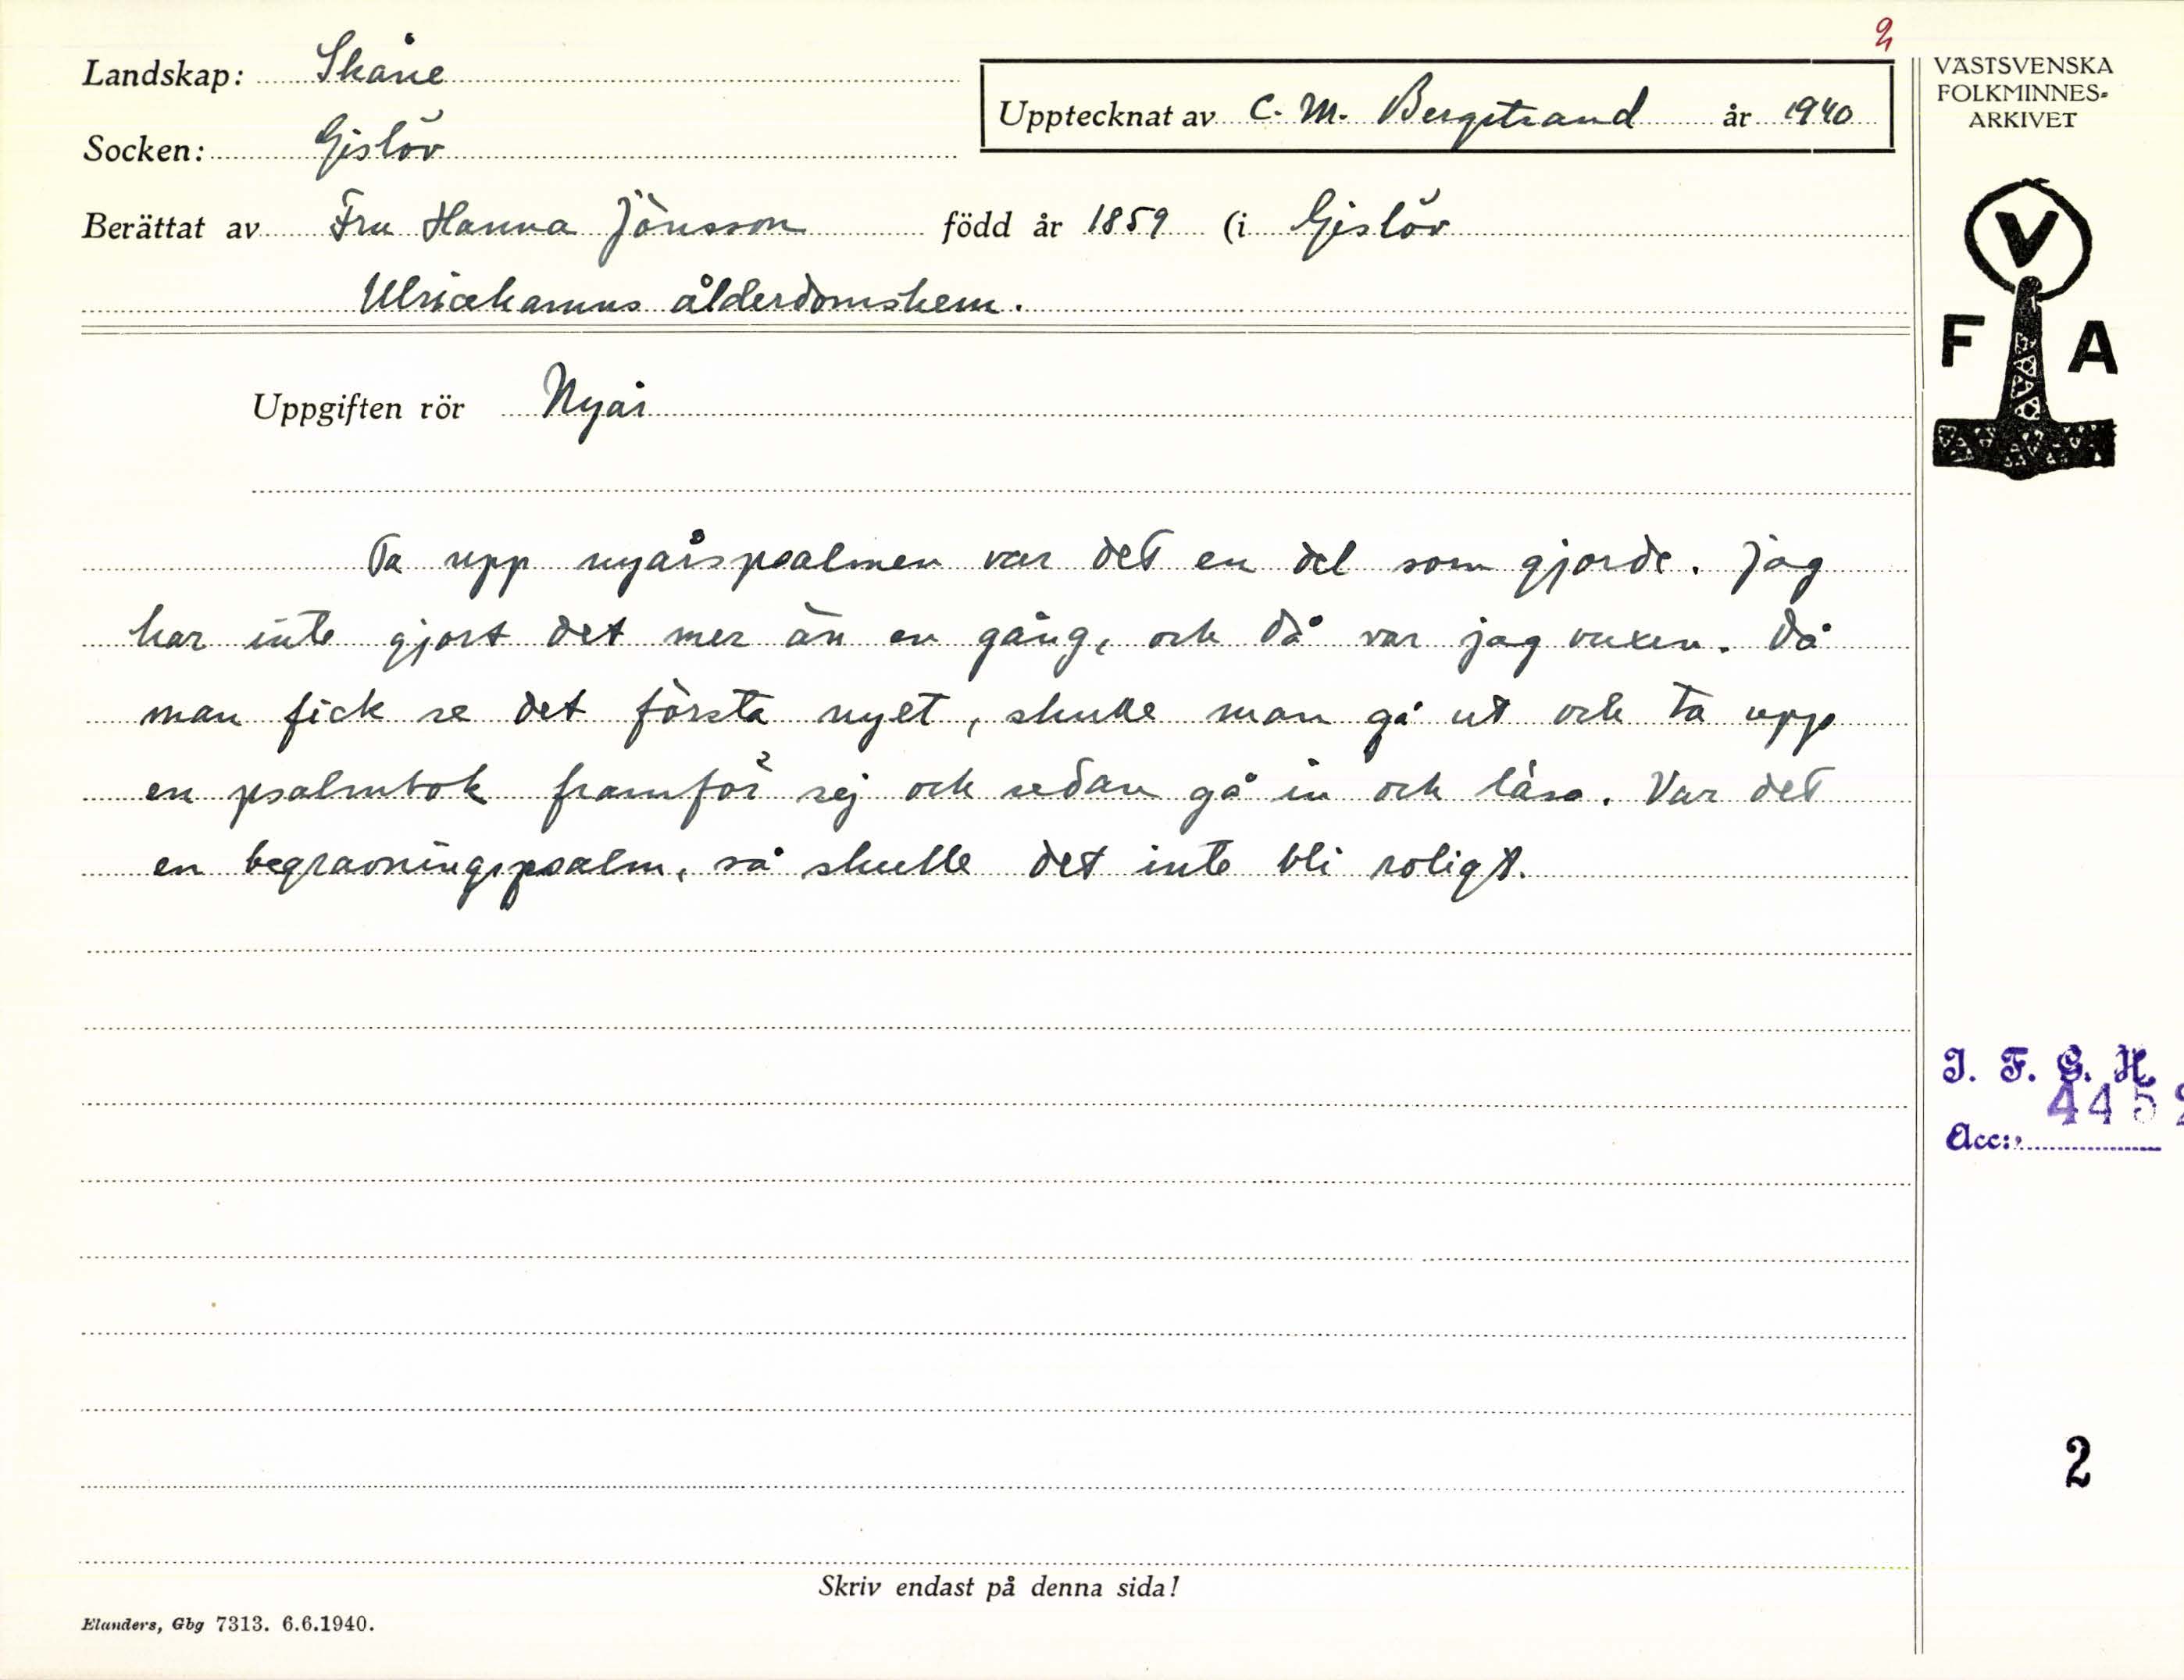 2
Landskap: Skåne
Upptecknat av C. M. Bergstrand år 1940
Socken: Gislöv
Berättat av Fru Hanna Jönsson född år 1859 (i Gislöv
Ulricehamns ålderdomshem.
Uppgiften rör Nyår
Ta upp nyårspsalmen var det en del som gjorde. Jag
har inte gjort det mer än en gång, och då var jag vuxen. Då
man fick se det första nyet, skulle man gå ut och ta upp
en psalmbok framför sej och sedan gå in och läsa. Var det
en begravningspsalm, så skulle det inte bli roligt.
Skriv endast på denna sida!
Elanders, Gbg 7313. 6.6.1940.
VÄSTSVENSKA
FOLKMINNES-
ARKIVET
V
F A
I. F. G. H.
445
Acc:
2